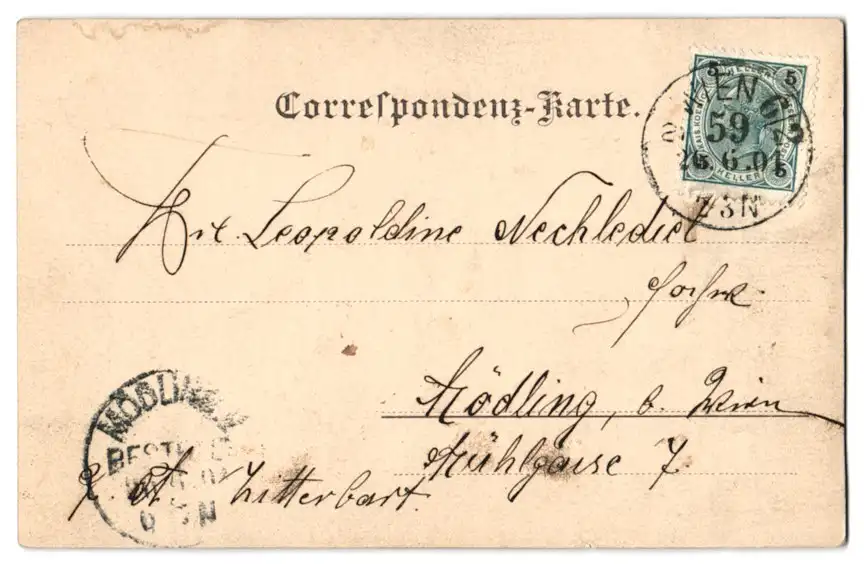 Correspondenz-Karte.
5 5
WIEN
59
26.6.01
2-3N
KELLER
Leopoldine Nechlediel
Mödling, b. Wien
Mühlgasse 7
MÖDLING
BESTELLT
6 N
Zitterbart.